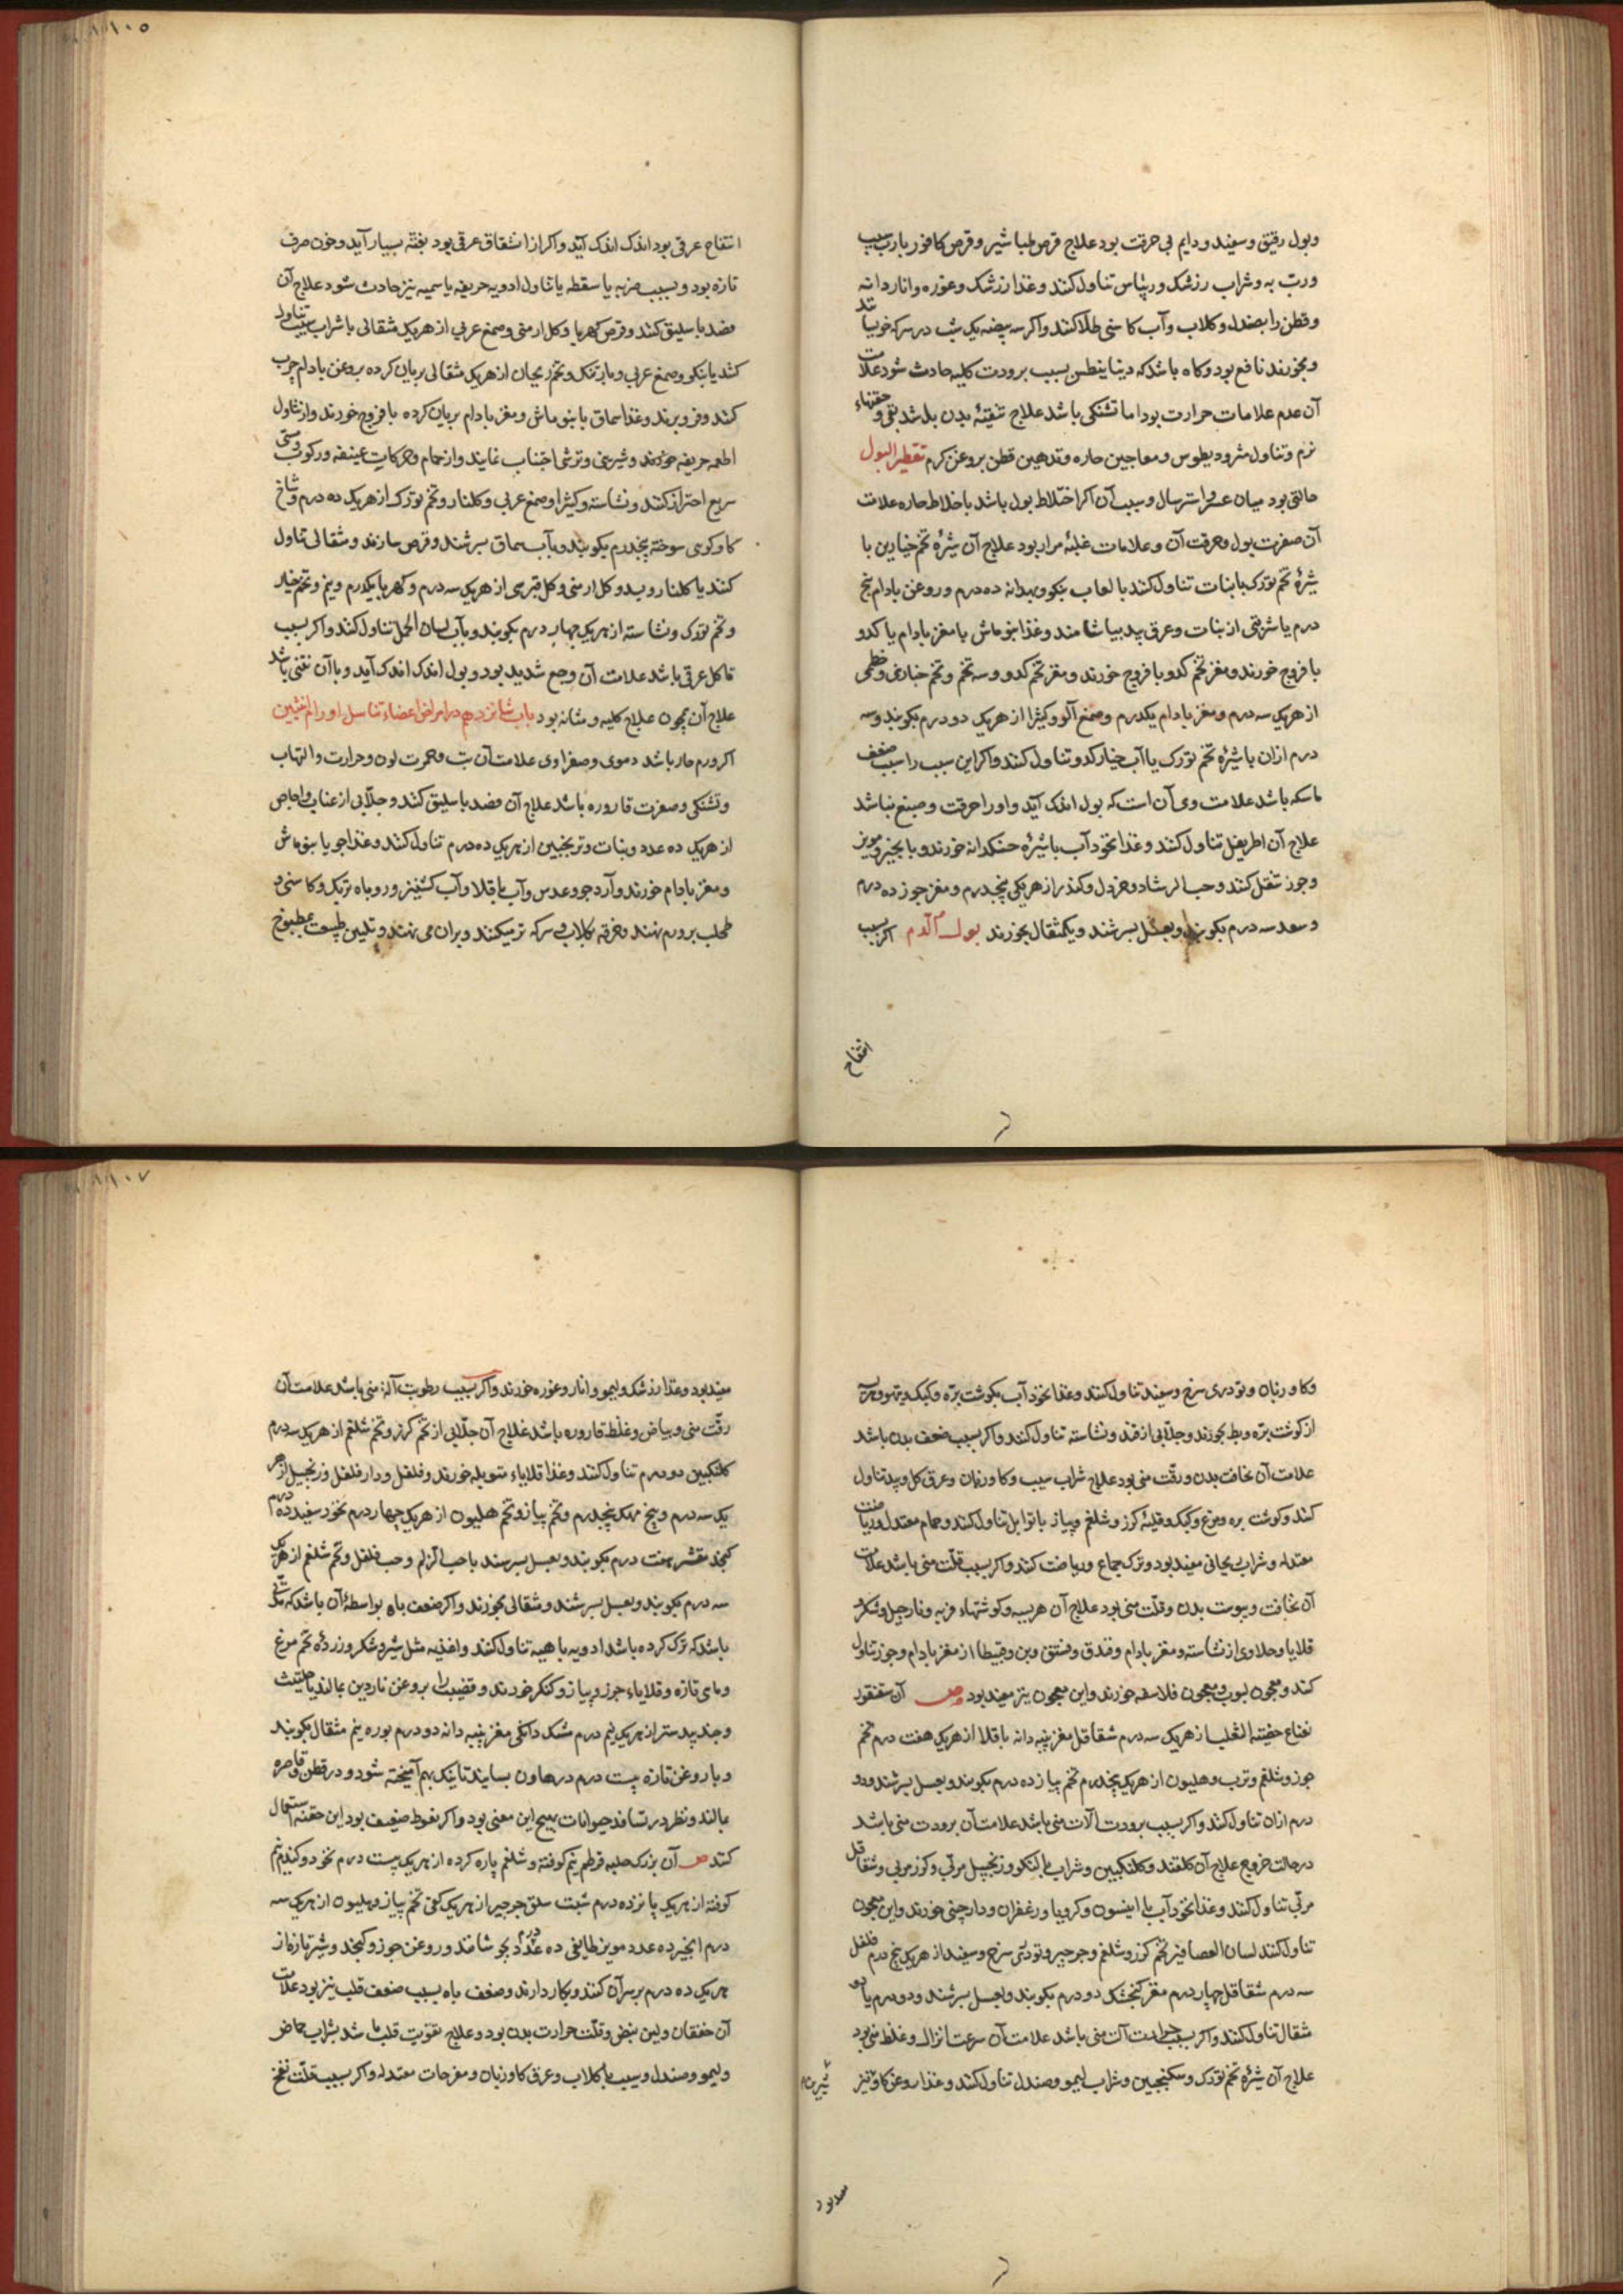 وبول رقیق وسفید ودایم بی حرقت بود علاج قرص طباشیر وقرص کافور بارب سیب
ورب به وشراب رزشک وریباس تناول کنند وغذا رزشک وغوره واناردانه
وقطن را بصندل وکلاب وآب کاسنی طلا کنند واکر سه بیضه یک شب در سرکه خویسانند
وبخورند نافع بود وکاه باشد که دیابیطس بسبب برودت کلیه حادث شود علامت
آن عدم علامات حرارت بود اما تشنکی باشد علاج تنقیهٔ بدن باشد بقی وحقنهاء
نرم وتناول مثرودیطوس ومعاجین حاره وتدهین قطن بروغن کرم تقطیر البول
حالتی بود میان عسر واسترسال وسبب آن اکر اختلاط بول باشد باخلاط حاره علامت
آن صفرت بول وحرقت آن وعلامات غلبهٔ مرار بود علاج آن شیرهٔ تخم خیارین با
شیرهٔ تخم تورک بانبات تناول کنند بالعاب بنکو وبهدانه ده درم وروغن بادام پنج
درم یا شربتی از نبات وعرق بید بیاشامند وغذا بنوماش با مغز بادام یا کدو
با فروج خورند ومغز تخم کدو با فروج خورند ومغز تخم کدو وسه تخم وتخم خبازی وخطمی
از هریک سه درم ومغز بادام یکدرم وصمغ آلو وکثیرا از هریک دو درم بکوبند وسه
درم ازان با شیرهٔ تخم تورک یا آب خیار کدو تناول کنند واکر این سبب را سبب ضعف
ماسکه باشد علامت وی آن است که بول اندک آید واورا حرقت وصبغ نباشد
علاج آن اطریفل تناول کنند وغذا نخود آب باشیرهٔ خسکدانه خورند وبانجیر ومویز
وجوز تنقل کنند وحب الرشاد وخردل وکندر از هریکی پنجدرم ومغز جوز ده درم
وسعد سه درم بکوبند وبعسل بسرشند ویکمثقال بخورند بول الدم اکر بسبب
انتفاح
انتفاح عرقی بود اندک اندک آید واکر از انشقاق عرقی بود بغتة بسیار آید وخون صرف
تازه بود وبسبب ضربه یا سقطه یا تناول ادویه حریفه یا سمیه نیز حادث شود علاج آن
فصد باسلیق کنند وقرص کهربا وکل ارمنی وصمغ عربی از هریک مثقالی با شراب سیب تناول
کنند یا بنکو وصمغ عربی وبارتنک وتخم ریحان از هریک مثقالی بریان کرده بروغن بادام چرب
کنند وفرو برند وغذا سماق با بنوماش ومغز بادام بریان کرده با فروج خورند واز تناول
اطعمه حریفه خورند وشیرینی وترشی اجتناب نمایند واز حمام وحرکات عنیفه ورکوب وسی
سریع احتراز کنند ونشاسته وکثیرا وصمغ عربی وکلنار وتخم تورک از هریک ده درم وشاخ
کاو کوهی سوخته پنجدرم بکوبند وبآب سماق سرشند وقرص سازند ومثقالی تناول
کنند یا کلنار وبسد وکل ارمنی وکل قبرسی از هریک سه درم وکهربا یکدرم ونیم وتخم خیار
وتخم تورک ونشاسته از هریک چهار درم بکوبند وبآب لسان الحمل تناول کنند واکر بسبب
تاکل عرقی باشد علامت آن وجع شدید بود وبول اندک اندک آید وباآن نتنی باشد
علاج آن همچون علاج کلیه ومثانه بود باب شانزدهم در امراض اعضاء تناسل اورام انثیین
اکر ورم حار باشد دموی وصفراوی علامت آن تب وحمرت لون وحرارت والتهاب
وتشنکی وصفرت قاروره باشد علاج آن فصد باسلیق کنند وجلابی از عناب واجاص
از هریک ده عدد ونبات وترنجبین از هریک ده درم تناول کنند وغذا جو یا بنوماش
ومغز بادام خورند وآرد جو وعدس وآب باقلا وآب کشنیز وروباه تربک وکاسنی و
طحلب بر ورم نهند وخرقه بکلاب وسرکه تر میکنند وبران می نهند وتلیین طبیعت بمطبوخ
وکاوزبان وتودری سرخ وسفید تناول کنند وغذا نخود آب بکوشت بره وکبک وتیهو وهریسه
از کوشت بره وبط بخورند وجلابی از قند ونشاسته تناول کنند واکر بسبب ضعف بدن باشد
علامت آن نحافت بدن ورقت منی بود علاج شراب سیب وکاوزبان وعرق کل وبید تناول
کنند وکوشت بره ومرغ وکبک وقلیهٔ کزر وشلغم وپیاز باتوابل تناول کنند وحمام معتدل وریاضت
معتدله وشراب ریحانی مفید بود وترک جماع وریاضت کنند واکر بسبب قلت منی باشد علامت
آن نحافت ویبوست بدن وقلت منی بود علاج آن هریسه وکوشتهاء فربه ونارجیل وشکر و
قلایا وحلاوی از نشاسته ومغز بادام وفندق وفستق وبن وقبیطا از مغز بادام وجوز تناول
کنند ومعجون لبوب ومعجون فلاسفه خورند واین معجون نیز مفید بود ص آن سقنقور
نعناع خصیة الثعلب از هریک سه درم شقاقل مغز پنبه دانه باقلا از هریک هفت درم تخم
جوز وشلغم وترب وهلیون از هریک پنجدرم تخم پیاز ده درم بکوبند وبعسل بسرشند ودو
درم ازان تناول کنند واکر بسبب برودت آلات منی باشد علامت آن برودت منی باشد
در حالت خروج علاج آن کلقند وکلنکبین وشراب با لنکو وزنجبیل مربی وکزر مربی وشقاقل
مربی تناول کنند وغذا نخود آب با انیسون وکرویا وزعفران ودارچینی خورند واین معجون
تناول کنند لسان العصافیر تخم کزر وشلغم وجرجیر وتودری سرخ وسفید از هریک پنج درم فلفل
سه درم شقاقل چهار درم مغز کنجشک دو درم بکوبند وبعسل بسرشند ودو درم یا دو
مثقال تناول کنند واکر بسبب حرارت آلت منی باشد علامت آن سرعت انزال وغلظ منی بود
علاج آن شیرهٔ تخم تورک وسکنجبین وشراب لیمو وصندل تناول کنند وغذا روغن کاو نیز
مفید بود وغذا رزشک ولیمو وانار وغوره خورند واکر بسبب رطوبت آلة منی باشد علامت آن
رقت منی وبیاض وغلظ قاروره باشد علاج آن جلابی از تخم کرز وتخم شلغم از هریک سه درم
کلنکبین دو درم تناول کنند وغذا قلایاء متوبله خورند وفلفل ودارفلفل وزنجبیل از هر
یک سه درم وبیخ مهک پنجدرم وتخم پیاز وتخم هلیون از هریک چهار درم نخود سفید ده درم
کنجد مقشر هفت درم بکوبند وبعسل بسرشند یا حب الزلم وحب فلفل وتخم شلغم از هریک
سه درم بکوبند وبعسل بسرشند ومثقالی بخورند واکر ضعف باه بواسطهٔ آن باشد که مدتی
باشد که ترک کرده باشد ادویه باهیه تناول کنند واغذیه مثل شیر وشکر وزردهٔ تخم مرغ
وماهی تازه وقلایاء جزر وپیاز وکنکر خورند وقضیب را بروغن ناردین بمالند یا حلتیت
وجندبیدستر از هریک نیم درم مشک دانکی مغز پنبه دانه دو درم بوره نیم مثقال بکوبند
وبا روغن تازه بیست درم در هاون بسایند تا نیک بهم آمیخته شود ودر قطن وخاصره
بمالند ونظر در تسافد حیوانات مهیج این معنی بود واکر نعوظ ضعیف بود این حقنه استعمال
کنند ص آن بزرک حلبه قرطم نیم کوفته وشلغم پاره کرده از هریک بیست درم نخود وکندم نیم
کوفته از هریک پانزده درم شبت سلق جرجیر از هریک کفی تخم پیاز وهلیون از هریک سه
درم انجیر ده عدد مویز طایفی ده عدد بجوشانند وروغن جوز وکنجد وشیر تازه از
هریک ده درم بر سر آن کنند وبکار دارند وضعف باه بسبب ضعف قلب نیز بود علامت
آن خفقان ولین نبض وقلت حرارت بدن بود وعلاج تقویت قلب باشد بشراب حماض
ولیمو وصندل وسیب با کلاب وعرق کاوزبان ومفرحات معتدله واکر بسبب قلت نفخ